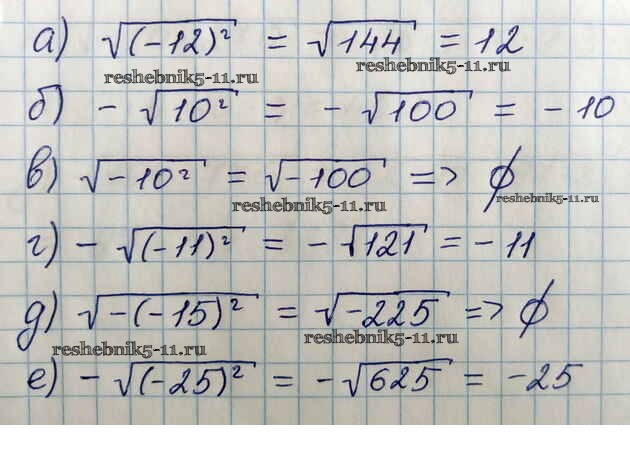 а) √(-12)² = √144 = 12
reshebnik5-11.ru
reshebnik5-11.ru
б) - √10² = - √100 = - 10
в) √-10² = √-100 => ∅
reshebnik5-11.ru
reshebnik5-11.ru
г) - √(-11)² = - √121 = - 11
д) √-(-15)² = √-225 => ∅
reshebnik5-11.ru
reshebnik5-11.ru
е) - √(-25)² = - √625 = -25